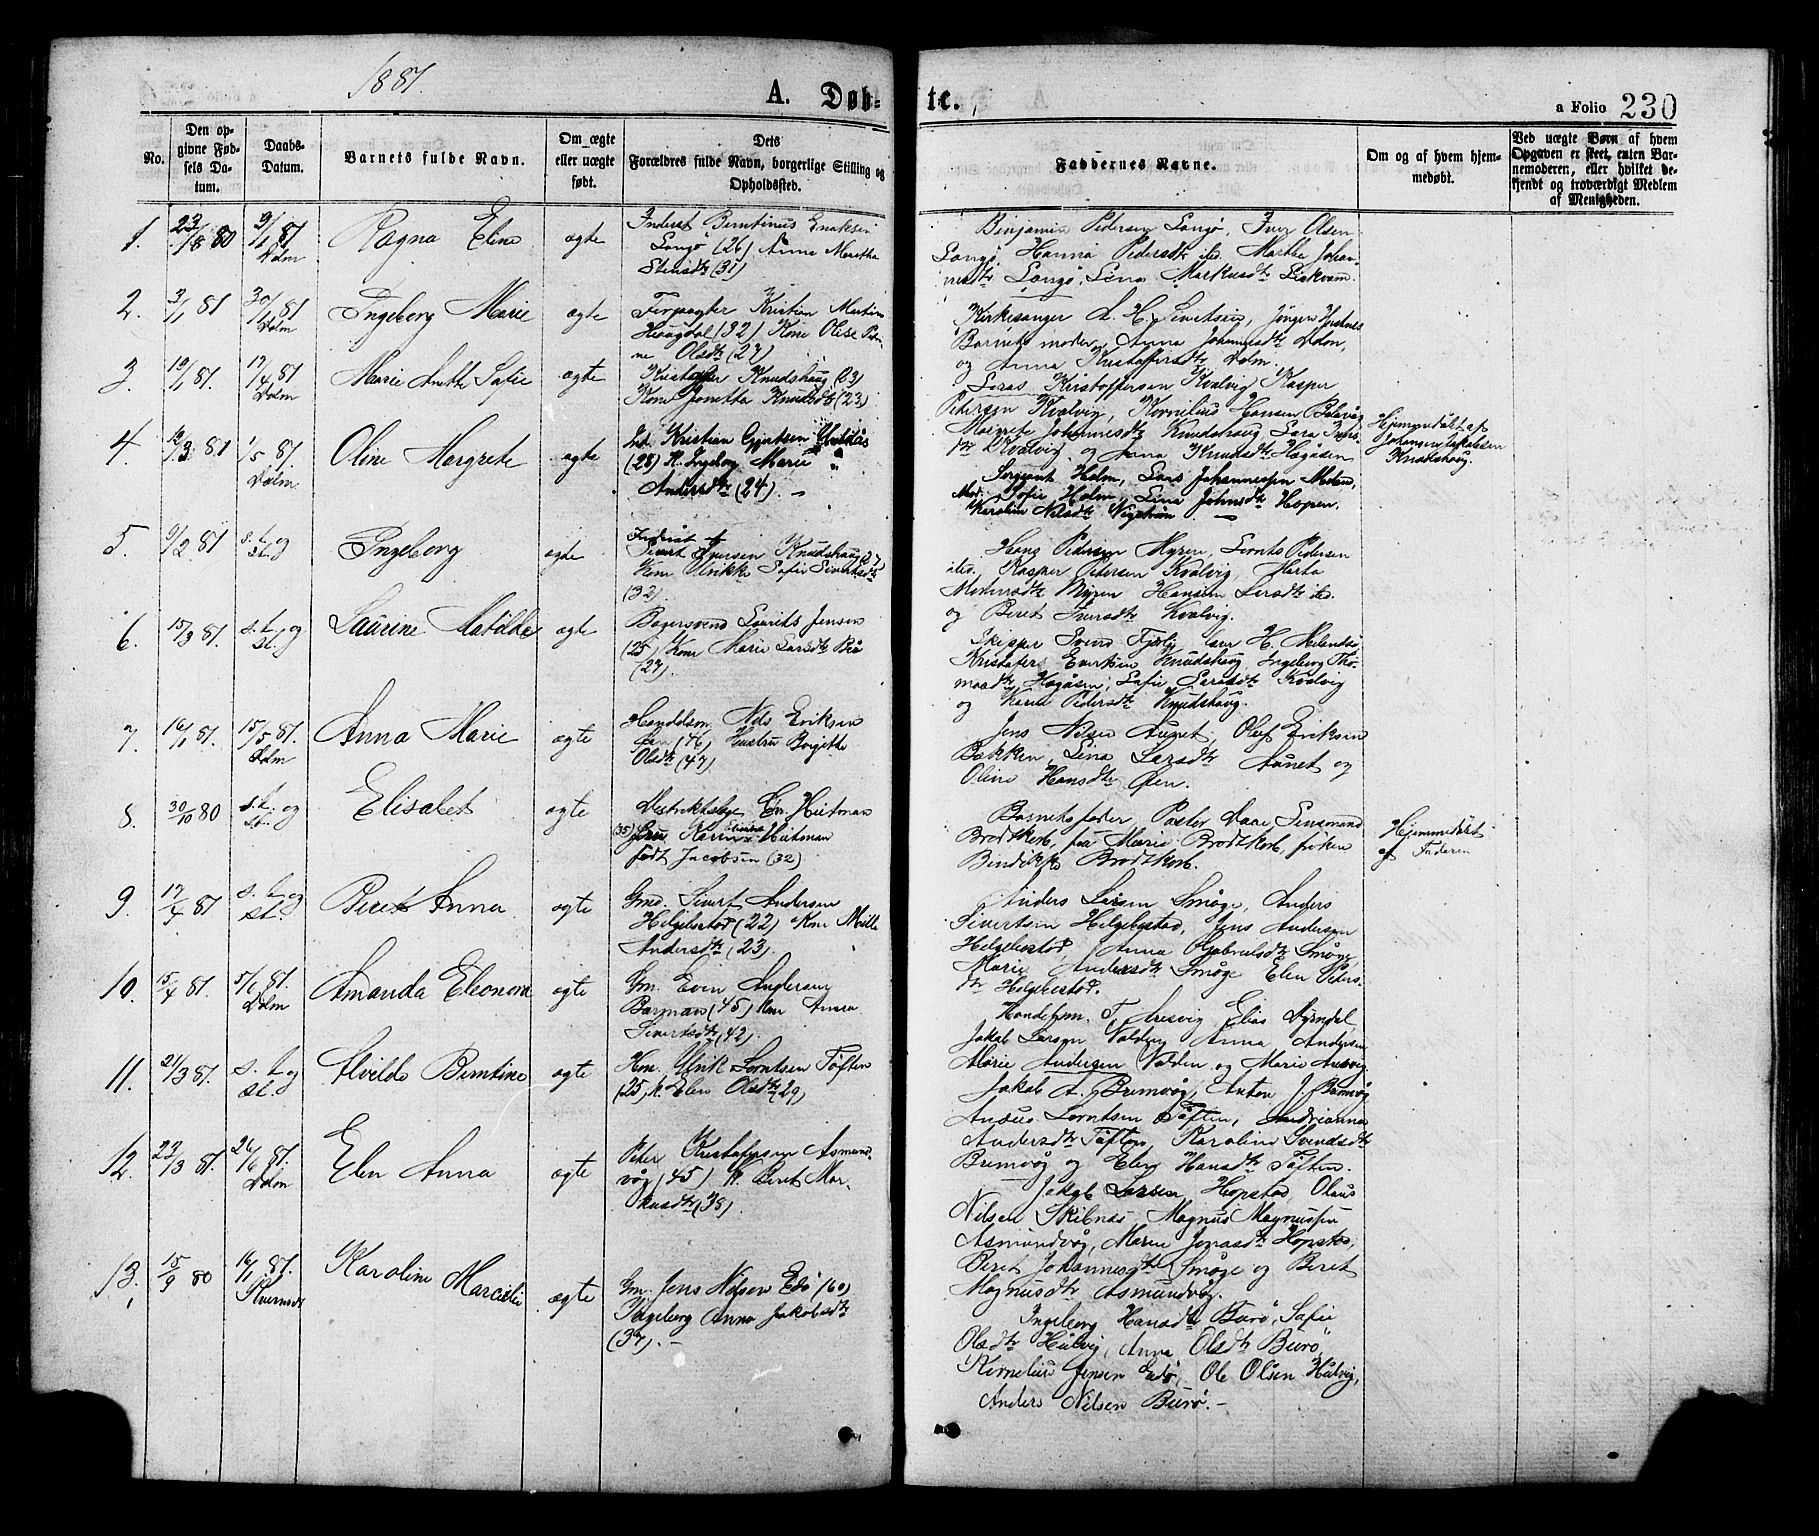 1881.
A. Døb-
te.
a Folio 230
No.
Den op-
givne Fød-
sels Da-
tum.
Daabs-
Datum.
Barnets fulde Navn.
Om ægte
eller uægte
født.
Dets
Forældres fulde Navn, borgerlige Stilling og
Opholdssted.
Faddernes Navne.
Om og af hvem hjem-
medøbt.
Ved uægte Børn af hvem
Opgaven er skeet, enten Bar-
nemoderen, eller hvilket be-
kjendt og troværdigt Medlem
af Menigheden.
1.
80
9/1 81
Dolm
Ragna Eline
ægte
Inderst Berntinus Enoksen
(26) Anna Maretha
(31)
Binjamin Pedersen Iver Olsen
Hanna Pedersdtr Marthe Johan-
Lina Markusdtr
2.
3/1 81
30/1 81
Dolm
Ingeborg Marie
ægte
Kristian Martin
Haugdal (32) Kone Olise Petri-
ne Olsdtr (27)
Kirkesanger
Barnets moder, Anna Johannesdtr Dolm,
og Anna Kristoffersdtr Dolm.
3.
19/1 81.
17/4 81
Dolm
Marie Anette Sofie
ægte
Kristoffer Knudshaug (23)
Kone Jonetta Knudsdtr (23)
Lars Kristoffersen Kvalvig Kasper
Petersen Kvalvig, Kornelius Hansen
Margrete Johannesdtr Knudshaug Sara Ivers-
dtr Kvalvig og Anna Knudsdtr Hagåsen
Hjemmedøbt af
Johannes Jakobsen
Knudshaug.
4.
12/3 81
1/5 81.
Dolm
Oline Margrete
ægte
Ind. Kristian Gjertsen Ulvåås
(28) K. Ingeborg Marie
Andersdtr (24). —
Sergeant Holm, Lars Johannessen
Mad. Sofie Holm, Lina Johnsdtr Hopen,
Karoline Nilsdtr
5.
9/2 81
s. k. og
st.
Ingeborg
ægte
Inderst
Sivert Iversen Knudshaug
Kone Ulrikke Sofie Sivertsdtr
(32)
Hans Pedersen Myren, Lornts Pedersen
Kasper Petersen Kvalvig,
Myren Larsdtr
og Beret Iversdtr Kvalvig.
6.
15/3 81.
s. k. og
st.
Laurine Matilde
ægte
Bagersvend Laurits Jensen
(25) Kone Marie Larsdtr
(27)
Skipper Svend
Kristofer Evertsen Knudshaug, Ingeborg Tho-
masdtr Hagåsen, Sofie Larsdtr Kvalvig
og Karen Pedersdtr Knudshaug.
7.
16/1 81.
15/5 81.
Dolm
Anna Marie
ægte
Handelsm. Nils Eriksen
Øien (46) Hustru Birgitte
Olsdtr (47)
Jens Nilsen Aunet, Oluf Eriksen
Bakken, Lina Larsdtr Aunet og
Oline Hansdtr Øien.
8.
30/10 80
s. k. og
st.
Elisabet
ægte
Distriktslæge Heitman
(35) Fru Karen Heitman
født Jacobsen (32)
Barnets fader, Pastor Daae Lensmand
Brodtkorb, fru Marie Brodtkorb, frøken
Brodtkorb.
Hjemmedøbt
af Faderen
9.
17/4 81
s. k. og
st.
Beret Anna
ægte
Gmd. Sivert Andersen
Helgebostad (22) Kone Mille
Andersdtr (23)
Anders Larsen Smøge, Anders
Sivertsen Helgebostad, Jens Andersen
Helgebostad, Anna Gabrielsdtr Smøge,
Marie Andersdtr Smøge Elen Peders-
dtr Helgebostad.
10.
15/4 81.
5/6 81.
Dolm
Amanda Eleonora
ægte
Gm. Even Andersen
Barman (45) Kone Anna
Sivertsdtr (42)
Handelsm. T. Elias
Jakob Larsen Anna Andersen
Marie Andersen og Marie
11.
21/3 81.
s. k. og
st.
Alvilde Berntine
ægte
Hm. Ulrik Lorntsen Tøften
(25), K. Elen Olsdtr (29)
Jakob A. Bremvåg, Anton J. Bremvåg
Lorntsen Tøften, Andrianna
Andersdtr Tøften, Karoline Svendsdtr
Bremvåg og Elen Hansdtr Tøften.
12.
27/3 81.
26/6 81.
Dolm
Elen Anna
ægte
Peter Kristofersen Asmund-
våg (45) K. Beret Mar-
kusdtr (38)
Jakob Larsen Hopstad, Olaus
Nilsen Skibnæs Magnus Magnussen
Asmundvåg, Maren Jonasdtr Hopstad,
Beret Johannesdtr Smøge og Beret
Magnusdtr Asmundvåg.
13.
15/9 80
16/1 81.
Karoline Marcelie
ægte
Gm. Jens Nilsen Edø (60)
Ingeborg Anna Jakobsdtr
(37). —
Ingeborg Hansdtr Burø, Sofie
Olsdtr Hulvig, Anna Olsdtr Burø,
Kornelius Jensen Edø, Ole Olsen Hulvig,
Anders Nilsen Burø. —